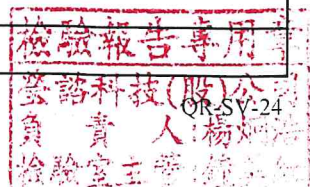 檢驗報告專用章
登諮科技(股)公
QR-SV-24
負責人楊
檢驗室主管